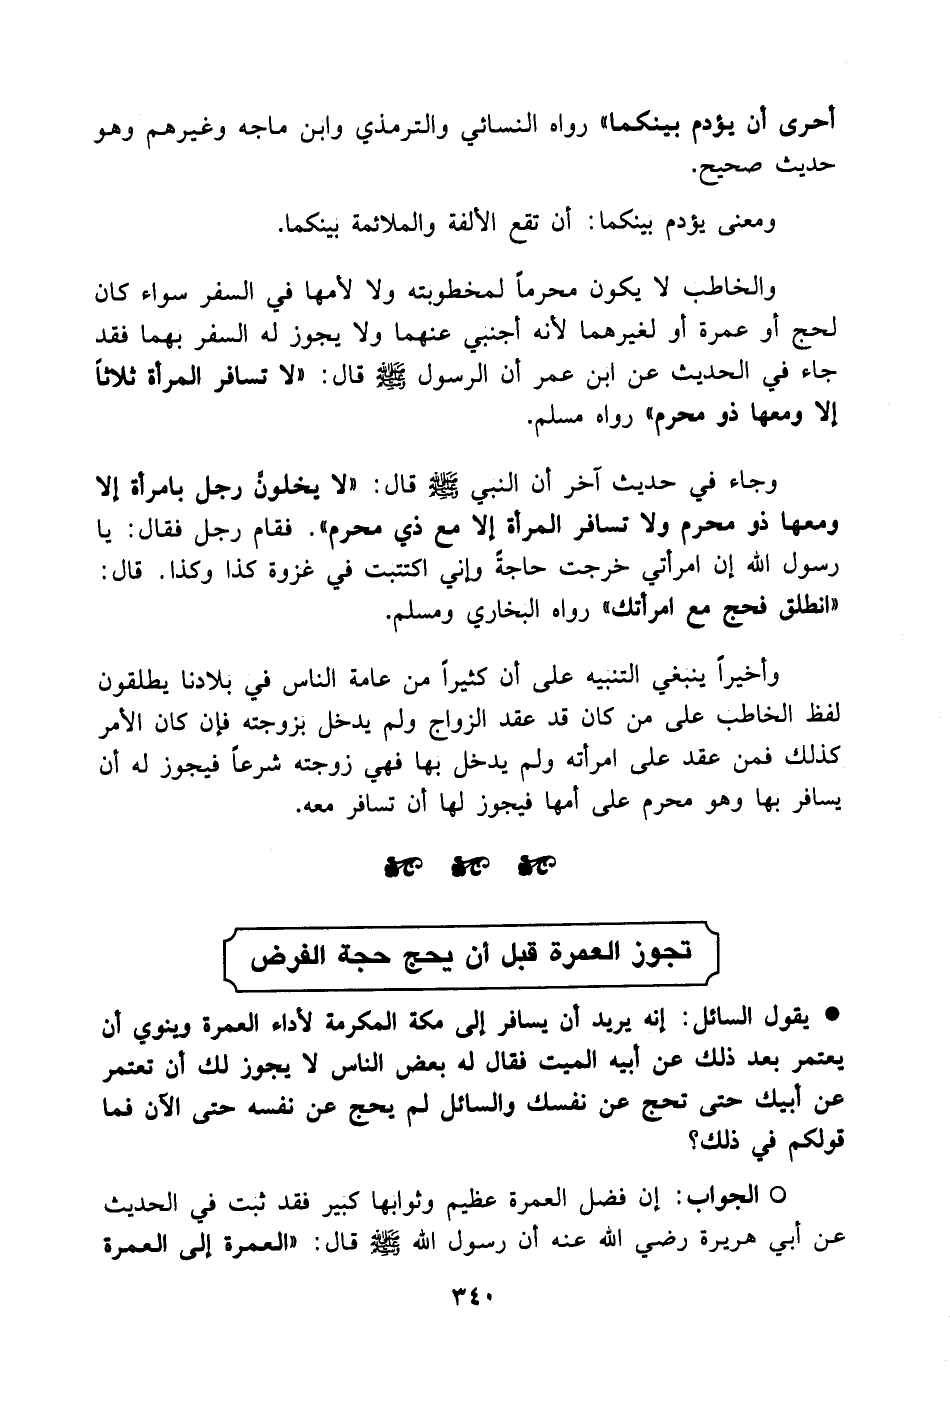 أحرى أن يؤدم بينكما» رواه النسائي والترمذي وابن ماجه وغيرهم وهو
حديث صحيح.
ومعنى يؤدم بينكما: أن تقع الألفة والملائمة بينكما.
والخاطب لا يكون محرماً لمخطوبته ولا لأمها في السفر سواء كان
لحج أو عمرة أو لغيرهما لأنه أجنبي عنهما ولا يجوز له السفر بهما فقد
جاء في الحديث عن ابن عمر أن الرسول ﷺ قال: «لا تسافر المرأة ثلاثاً
إلا ومعها ذو محرم» رواه مسلم.
وجاء في حديث آخر أن النبي ﷺ قال: «لا يخلونَّ رجل بامرأة إلا
ومعها ذو محرم ولا تسافر المرأة إلا مع ذي محرم». فقام رجل فقال: يا
رسول الله إن امرأتي خرجت حاجةً وإني اكتتبت في غزوة كذا وكذا. قال:
«انطلق فحج مع امرأتك» رواه البخاري ومسلم.
وأخيراً ينبغي التنبيه على أن كثيراً من عامة الناس في بلادنا يطلقون
لفظ الخاطب على من كان قد عقد الزواج ولم يدخل بزوجته فإن كان الأمر
كذلك فمن عقد على امرأته ولم يدخل بها فهي زوجته شرعاً فيجوز له أن
يسافر بها وهو محرم على أمها فيجوز لها أن تسافر معه.
تجوز العمرة قبل أن يحج حجة الفرض
● يقول السائل: إنه يريد أن يسافر إلى مكة المكرمة لأداء العمرة وينوي أن
يعتمر بعد ذلك عن أبيه الميت فقال له بعض الناس لا يجوز لك أن تعتمر
عن أبيك حتى تحج عن نفسك والسائل لم يحج عن نفسه حتى الآن فما
قولكم في ذلك؟
○ الجواب: إن فضل العمرة عظيم وثوابها كبير فقد ثبت في الحديث
عن أبي هريرة رضي الله عنه أن رسول الله ﷺ قال: «العمرة إلى العمرة
٣٤٠